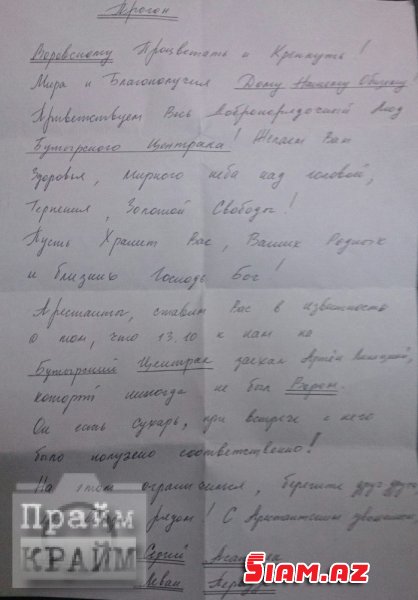 Прогон
Воровскому Процветать и Крепнуть!
Мира и Благополучия Дому Нашему Общему
Приветствуем Весь Добропорядочный Люд
Бутырского Централа! Желаем Вам
Здоровья, мирного неба над головой,
Терпения, Золотой Свободы!
Пусть Хранит Вас, Ваших Родных
и близких Господь Бог!
Арестанты, ставим Вас в известность
о том, что 13.10 к нам на
Бутырский Централ заехал Артём
который никогда не был Вором.
Он есть Сухарь, при встрече с него
было получено соответственно!
На этом ограничимся, берегите друг друга
рядом! С Арестантским уважением
Сергей
Леван
Прайм
КРАЙМ
SIAM.AZ